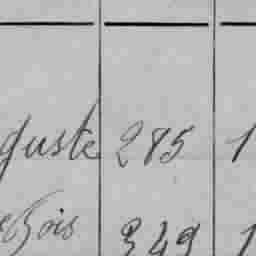 guste 285 1
Bois 349 1